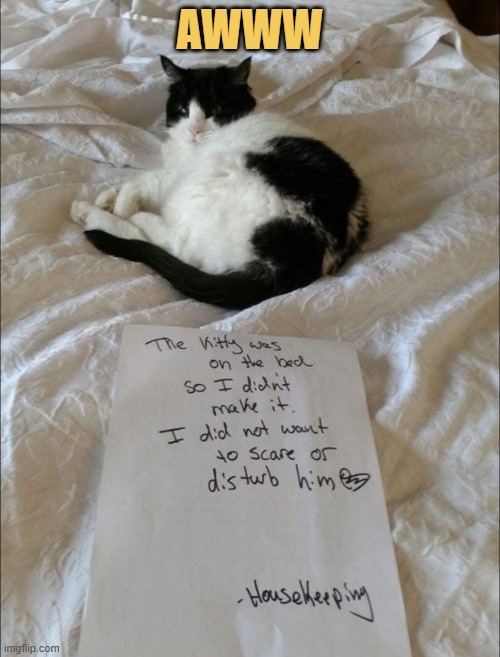 AWWW
The Kitty was
on the bed
so I didn't
make it.
I did not want
to scare or
disturb him
-Housekeeping
imgflip.com